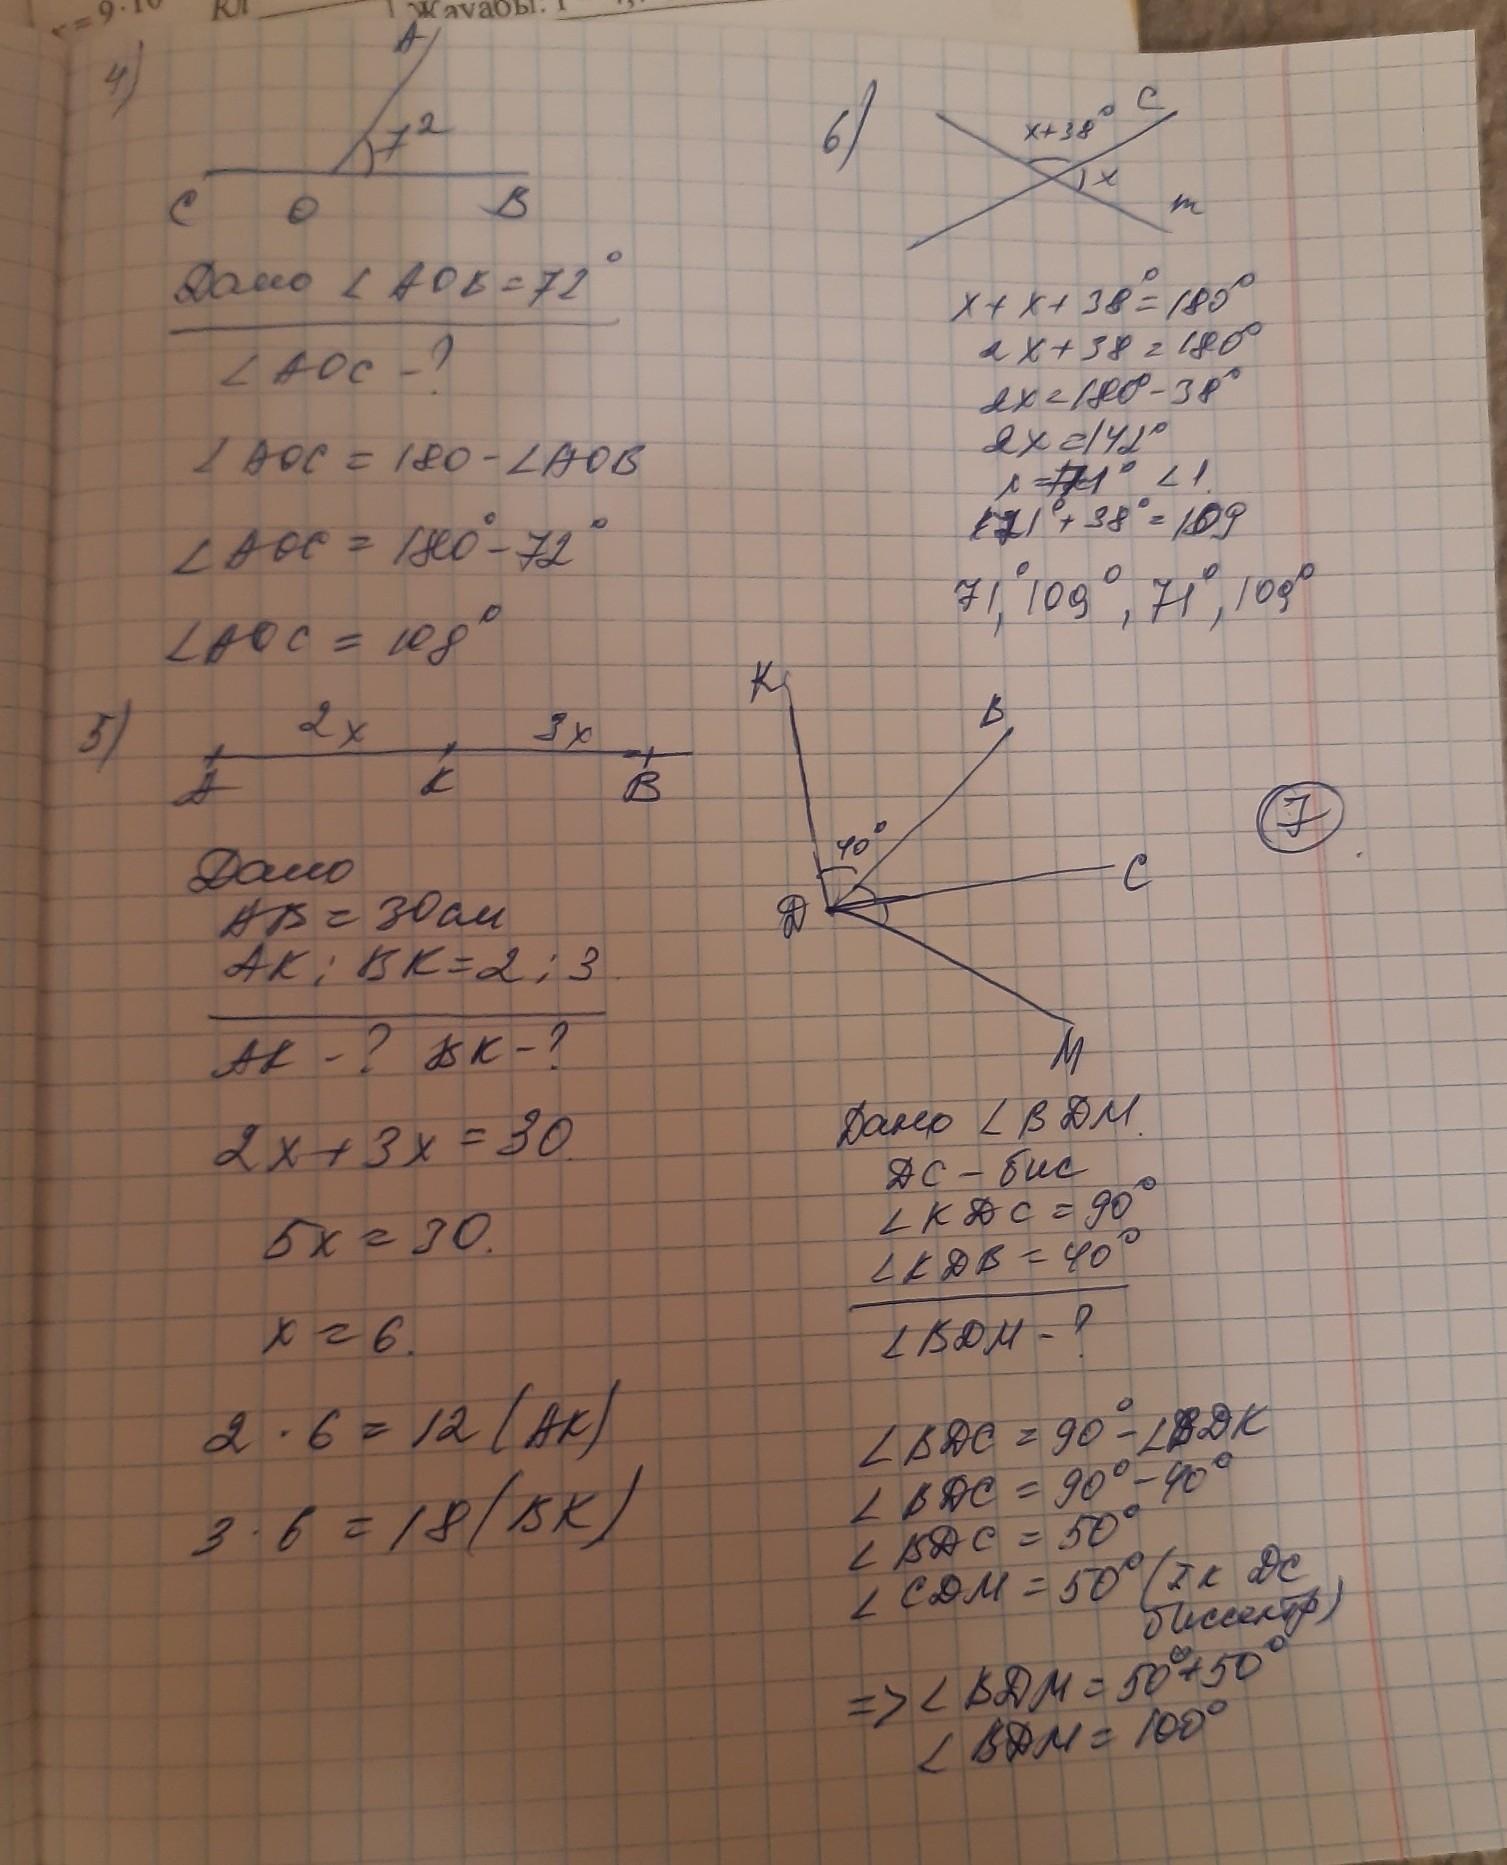 Жауабы:
4)
A
72
C O B
Дано ∠AOB=72°
∠AOC-?
∠AOC=180-∠AOB
∠AOC=180°-72°
∠AOC=108°
5)
2x 3x
A K B
Дано
AB=30см
AK:BK=2:3
AK-? BK-?
2x+3x=30.
5x=30.
x=6.
2·6=12(AK)
3·6=18(BK)
6)
x+38° C
x
m
x+x+38°=180°
2x+38=180°
2x=180°-38°
2x=142°
x=71° ∠1.
71°+38°=109
71°, 109°, 71°, 109°
7
K
B
40°
C
Д
M
Дано ∠BДM.
ДC-бис
∠KДC=90°
∠KДB=40°
∠BДM-?
∠BДC=90°-∠BДK
∠BДC=90°-40°
∠BДC=50°
∠CДM=50° (тк ДC
биссектр)
=>∠BДM=50°+50°
∠BДM=100°